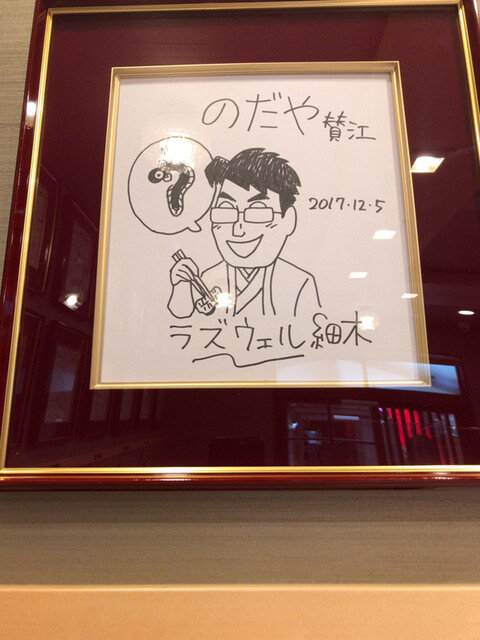 のだや賛江
2017.12.5
ラズウェル細木